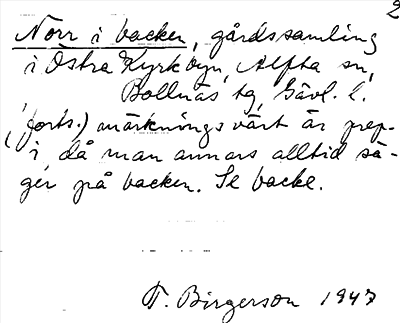 2
Norr i backen, gårdssamling
i Östra Kyrkbyn, Alfta sn,
Bollnäs tg, Gävl. l.
(forts.) märkningsvärt är prep.
i, då man annars alltid sä-
ger på backen. Se backe.
T. Birgerson 1947